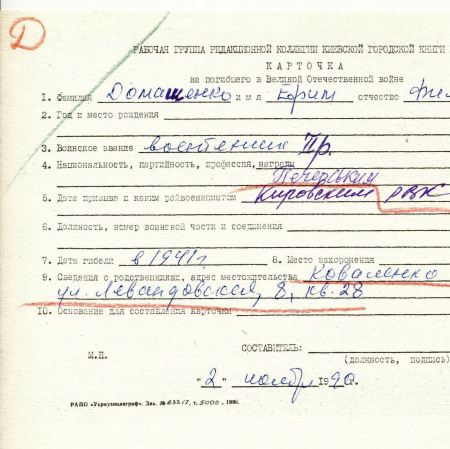 Д
РАБОЧАЯ ГРУППА РЕДАКЦИОННОЙ КОЛЛЕГИИ КИЕВСКОЙ ГОРОДСКОЙ КНИГИ
КАРТОЧКА
на погибшего в Великой Отечественной войне
1. Фамилия Домашенко имя Ефрим отчество
2. Год и место рождения
3. Воинское звание воентехник Пр.
4. Национальность, партийность, профессия, награды
Печерский
5. Дата призыва и каким райвоенкоматом Кировским РВК
6. Должность, номер воинской части и соединения
7. Дата гибели в 1941г 8. Место захоронения
9. Сведения о родственниках, адрес местожительства Коваленко
ул. Левандовская, 8, кв. 28
10. Основание для составления карточки
СОСТАВИТЕЛЬ:
М.П. (должность, подпись)
"2" ноября 1990
РАПО «Укрвузполиграф». Зак. № 03317, т. 5000. 1990.